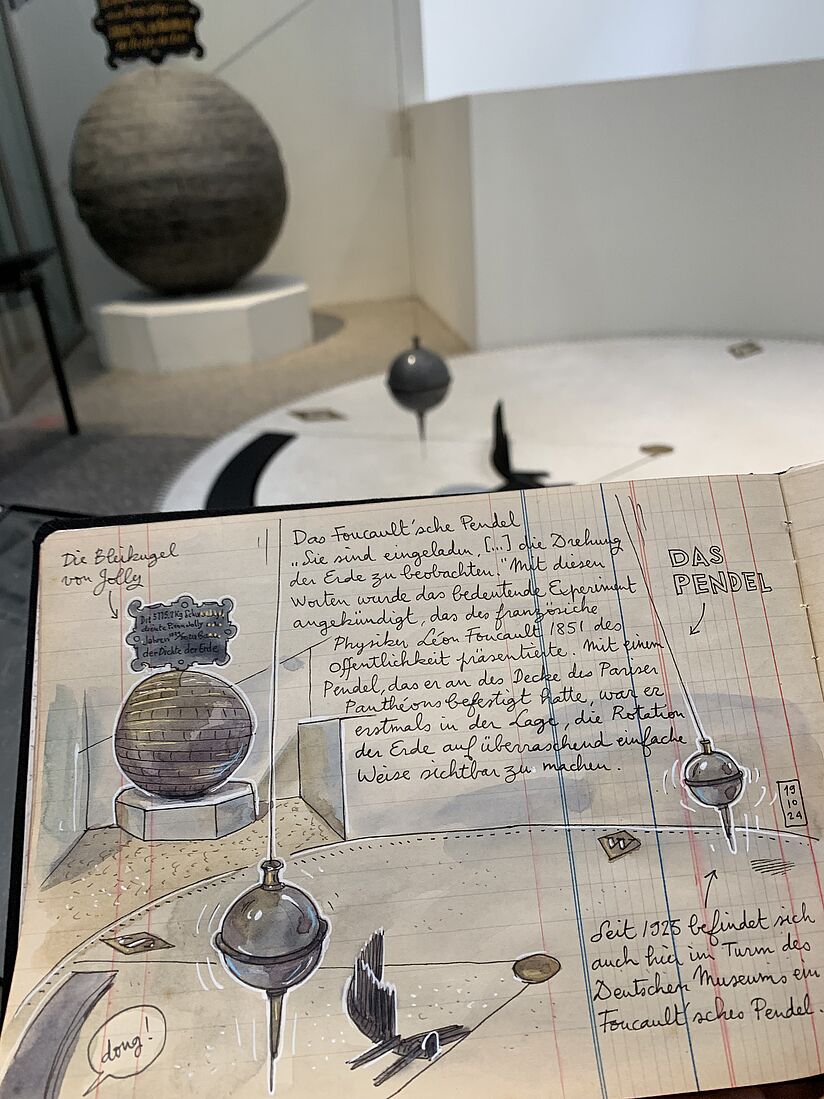 Die Bleikugel
von Jolly
Dichte der Erde
der Dichte der Erde
Das Foucault'sche Pendel
„Sie sind eingeladn, [...] die Drehung
der Erde zu beobachten." Mit diesen
Worten wurde das bedeutende Experiment
angekündigt, das des französiche
Physiker Léon Foucault 1851 des
Öffentlichkeit präsentierte. Mit einem
Pendel, das er an des Decke des Pariser
Panthéons befestigt hatte, war er
erstmals in der Lage, die Rotation
der Erde auf überraschend einfache
Weise sichtbar zu machen.
DAS
PENDEL
19
10
24
Seit 1925 befindet sich
auch hier im Turm des
Deutschen Museums ein
Foucault'sches Pendel.
dong!